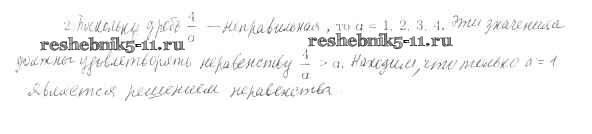 2. Поскольку дробь 4/a — неправильная, то a = 1, 2, 3, 4. Эти значения
reshebnik5-11.ru reshebnik5-11.ru
должны удовлетворять неравенству 4/a > a. Находим, что только a = 1
является решением неравенства.